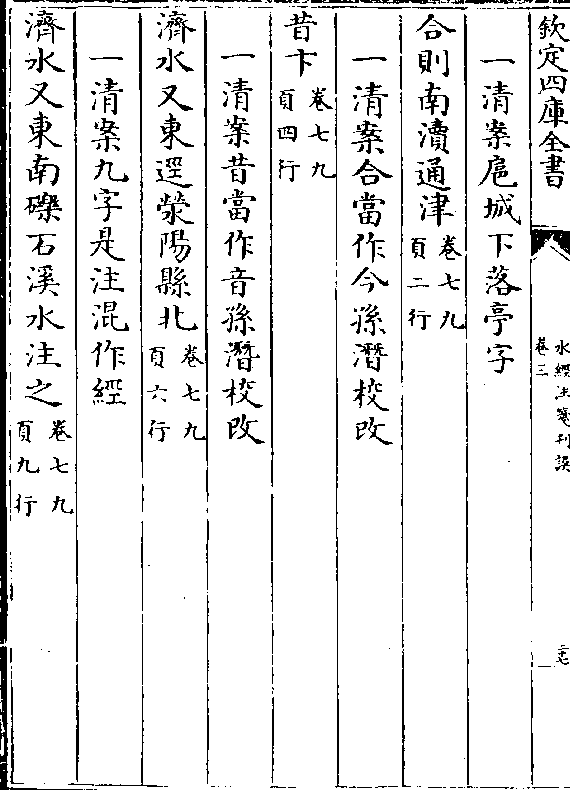 欽定四庫全書
水經注箋刊誤
卷三
一清案扈城下落亭字
合則南瀆通津卷七九頁二行
一清案合當作今孫潛校改
昔卞卷七九頁四行
一清案昔當作音孫潛校改
濟水又東逕滎陽縣北卷七九頁六行
一清案九字是注混作經
濟水又東南礫石溪水注之卷七九頁九行